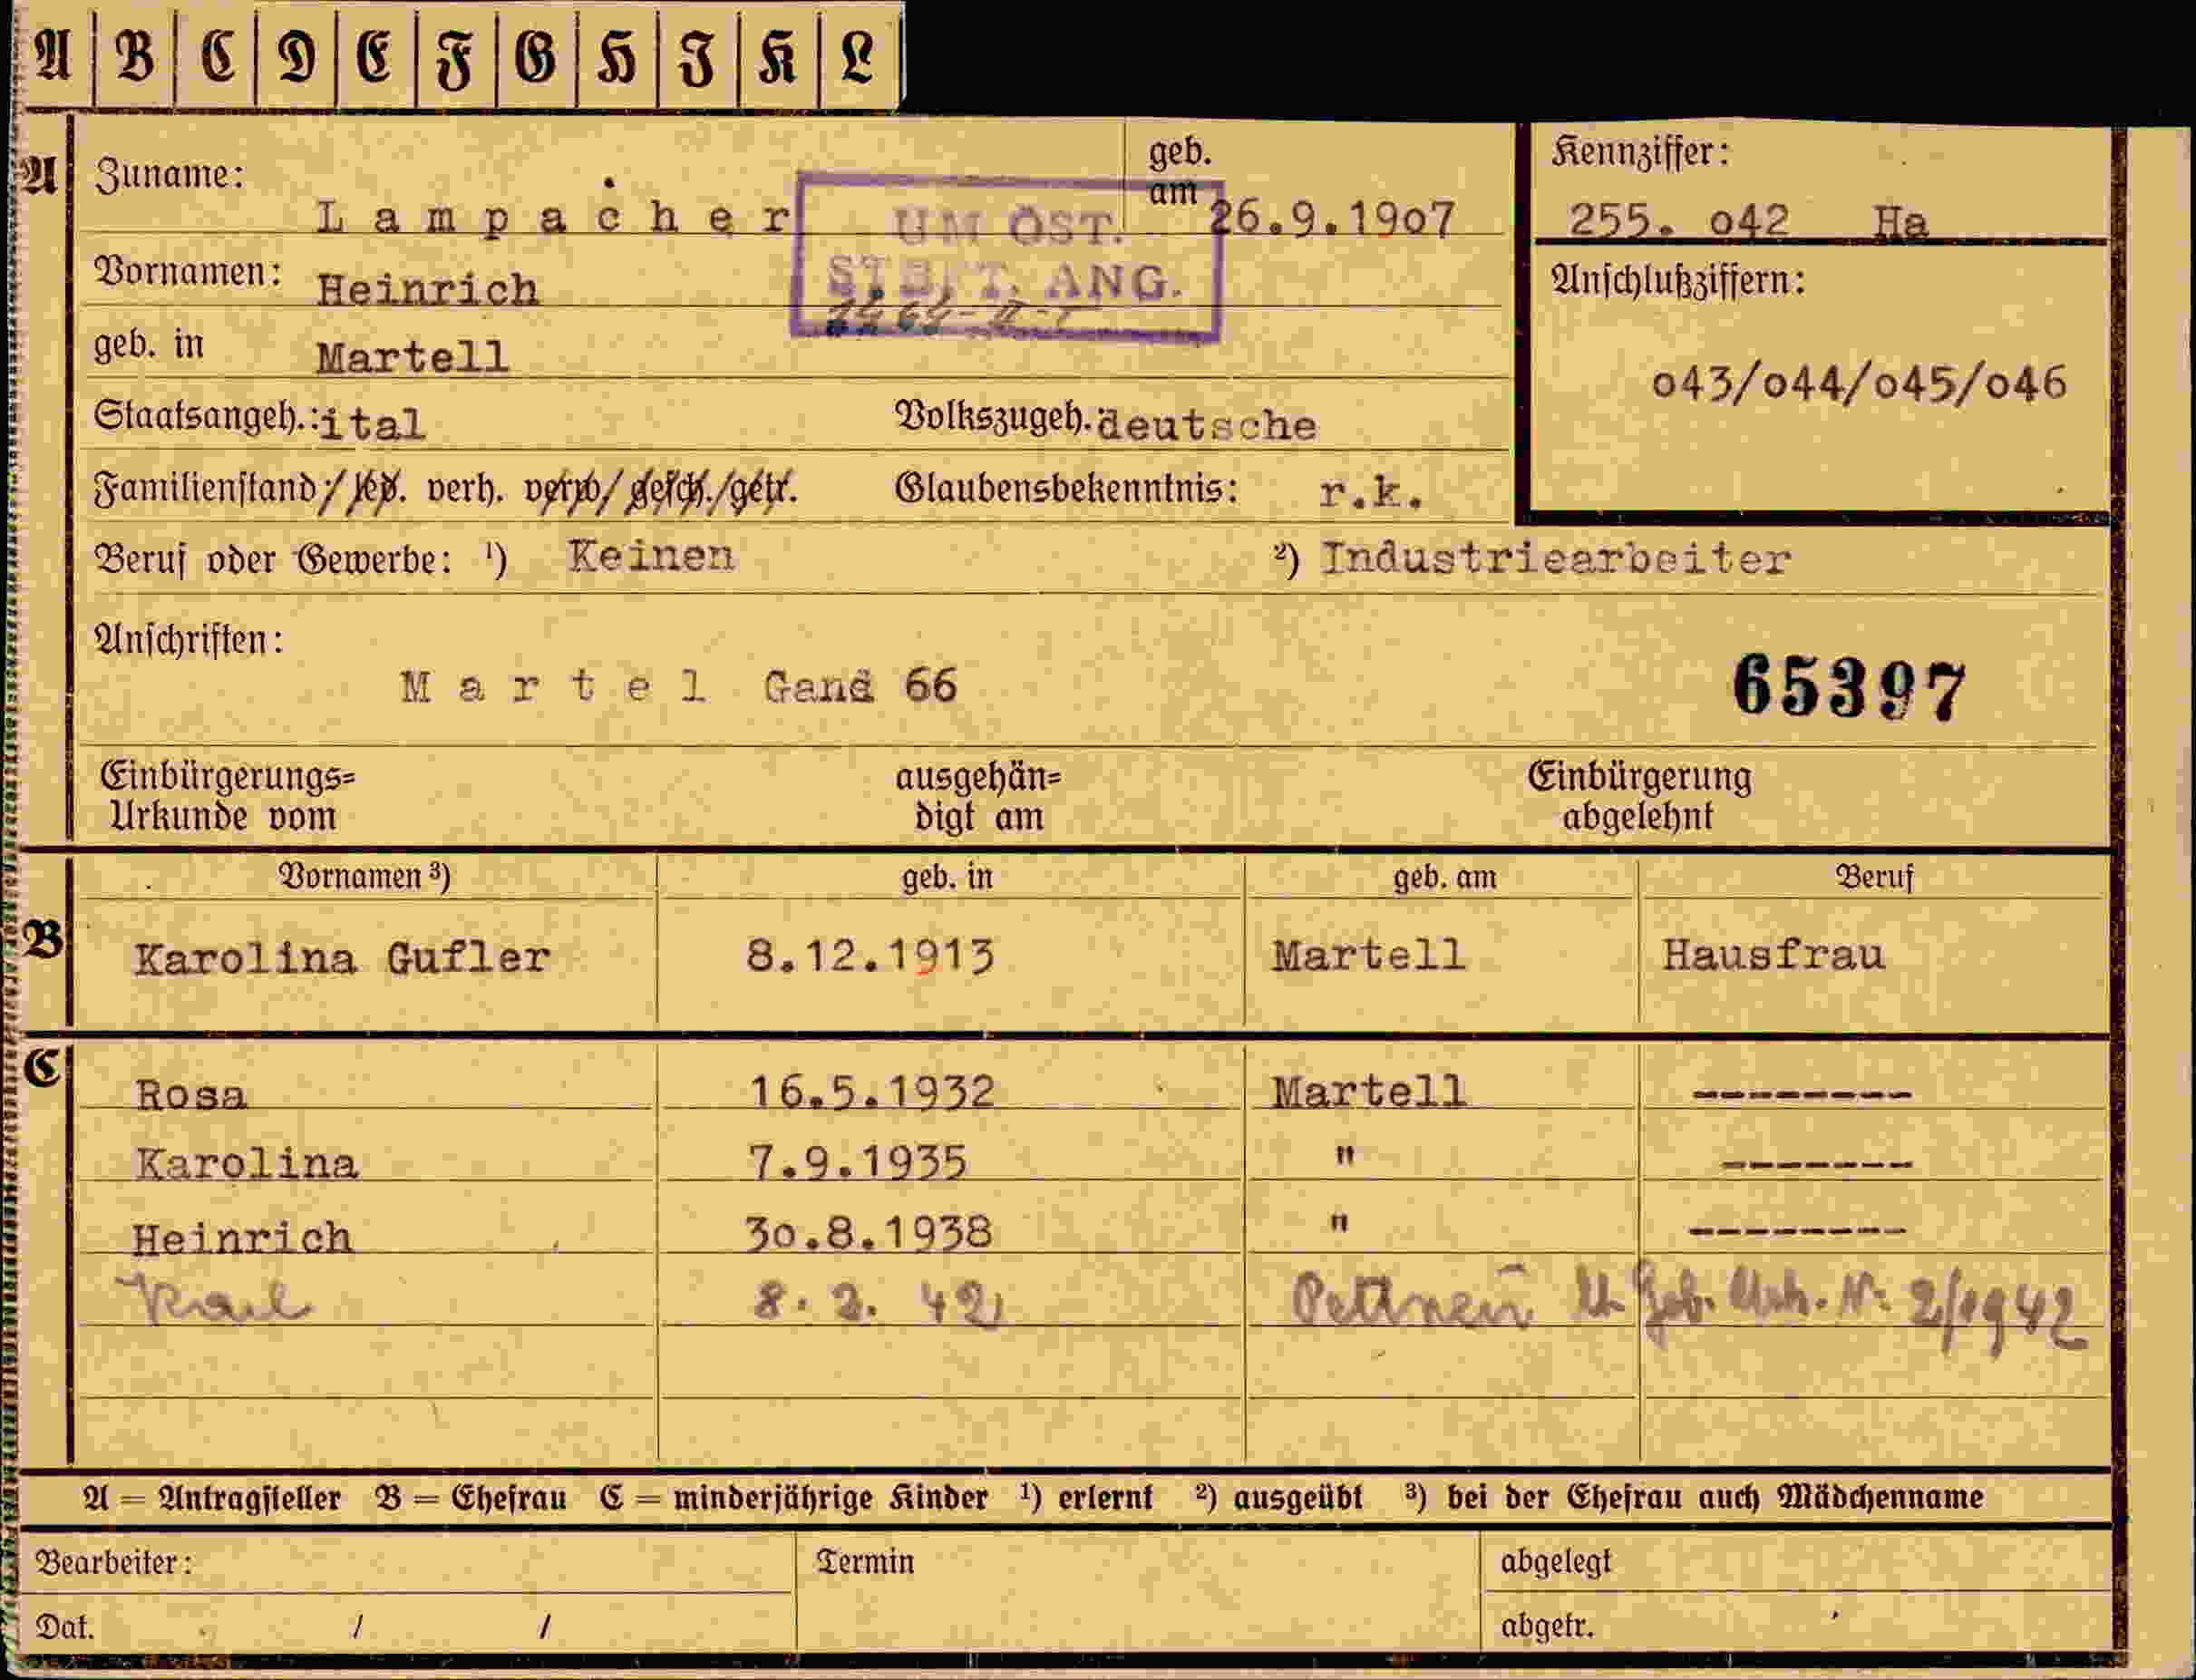 A B C D E F G H I K L
A Zuname: Lampacher geb. am 26.9.19o7 Kennziffer:
UM ÖST. 255. o42 Ha
Vornamen: Heinrich ST.B.T. ANG. Anschlußziffern:
geb. in Martell o43/o44/o45/o46
Staatsangeh.: ital Volkszugeh.: deutsche
Familienstand:/led. verh. verw/gesch./getr. Glaubensbekenntnis: r.k.
Beruf oder Gewerbe: ¹) Keinen ²) Industriearbeiter
Anschriften:
Martel Gand 66 65397
Einbürgerungs= Urkunde vom ausgehän= digt am Einbürgerung abgelehnt
Vornamen ³) geb. in geb. am Beruf
B Karolina Gufler 8.12.1913 Martell Hausfrau
C Rosa 16.5.1932 Martell --------
Karolina 7.9.1935 " -------
Heinrich 3o.8.1938 " --------
Karl 8. 2. 42 Pettneu Geb. Urk. Nr. 2/1942
A = Antragsteller B = Ehefrau C = minderjährige Kinder ¹) erlernt ²) ausgeübt ³) bei der Ehefrau auch Mädchenname
Bearbeiter: Termin abgelegt
Dat. / / abgetr.